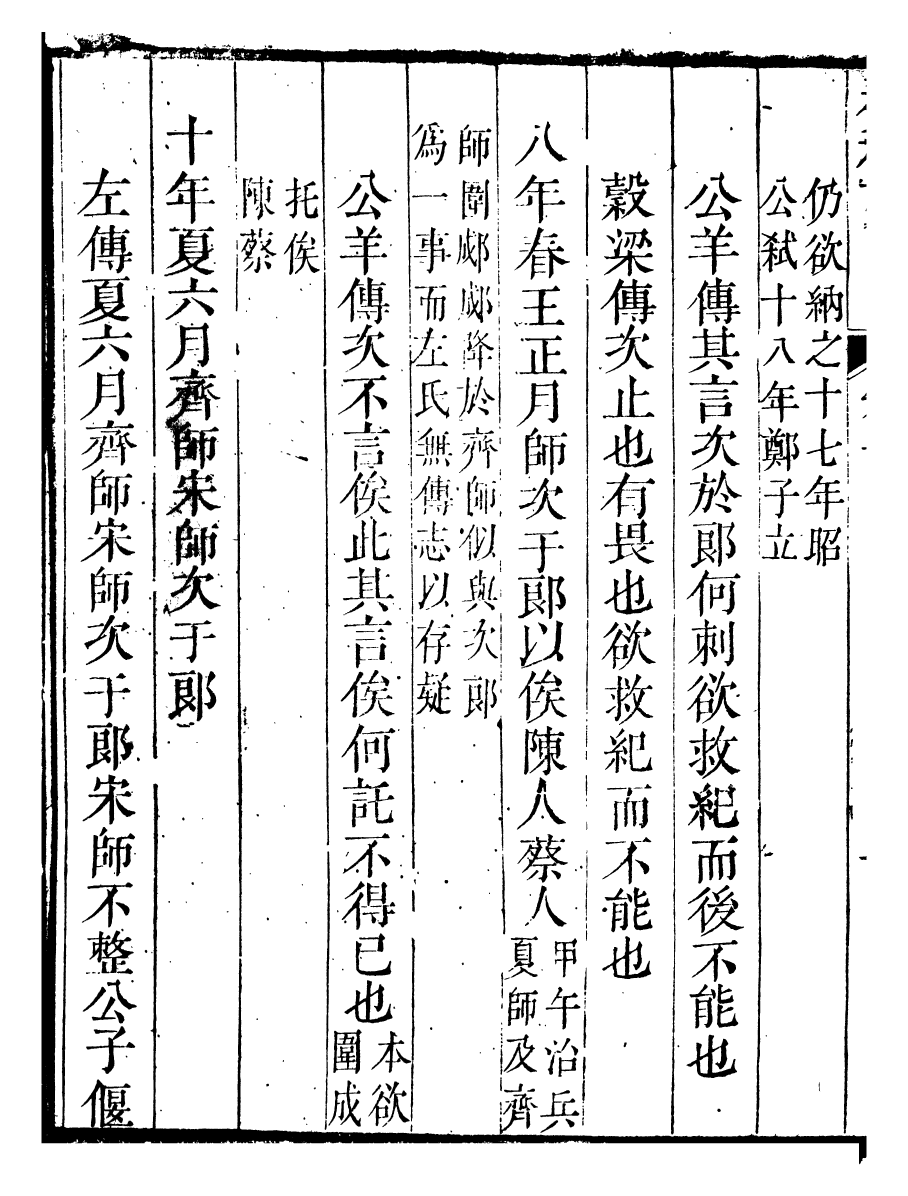 仍欲納之十七年昭
公弑十八年鄭子立
公羊傳其言次於郎何刺欲救紀而後不能也
穀梁傳次止也有畏也欲救紀而不能也
八年春王正月師次于郎以俟陳人蔡人甲午治兵
夏師及齊
師圍郕郕降於齊師似與次郎
爲一事而左氏無傳志以存疑
公羊傳次不言俟此其言俟何託不得已也本欲
圍成
托俟
陳蔡
十年夏六月齊師宋師次于郎
左傳夏六月齊師宋師次于郎宋師不整公子偃